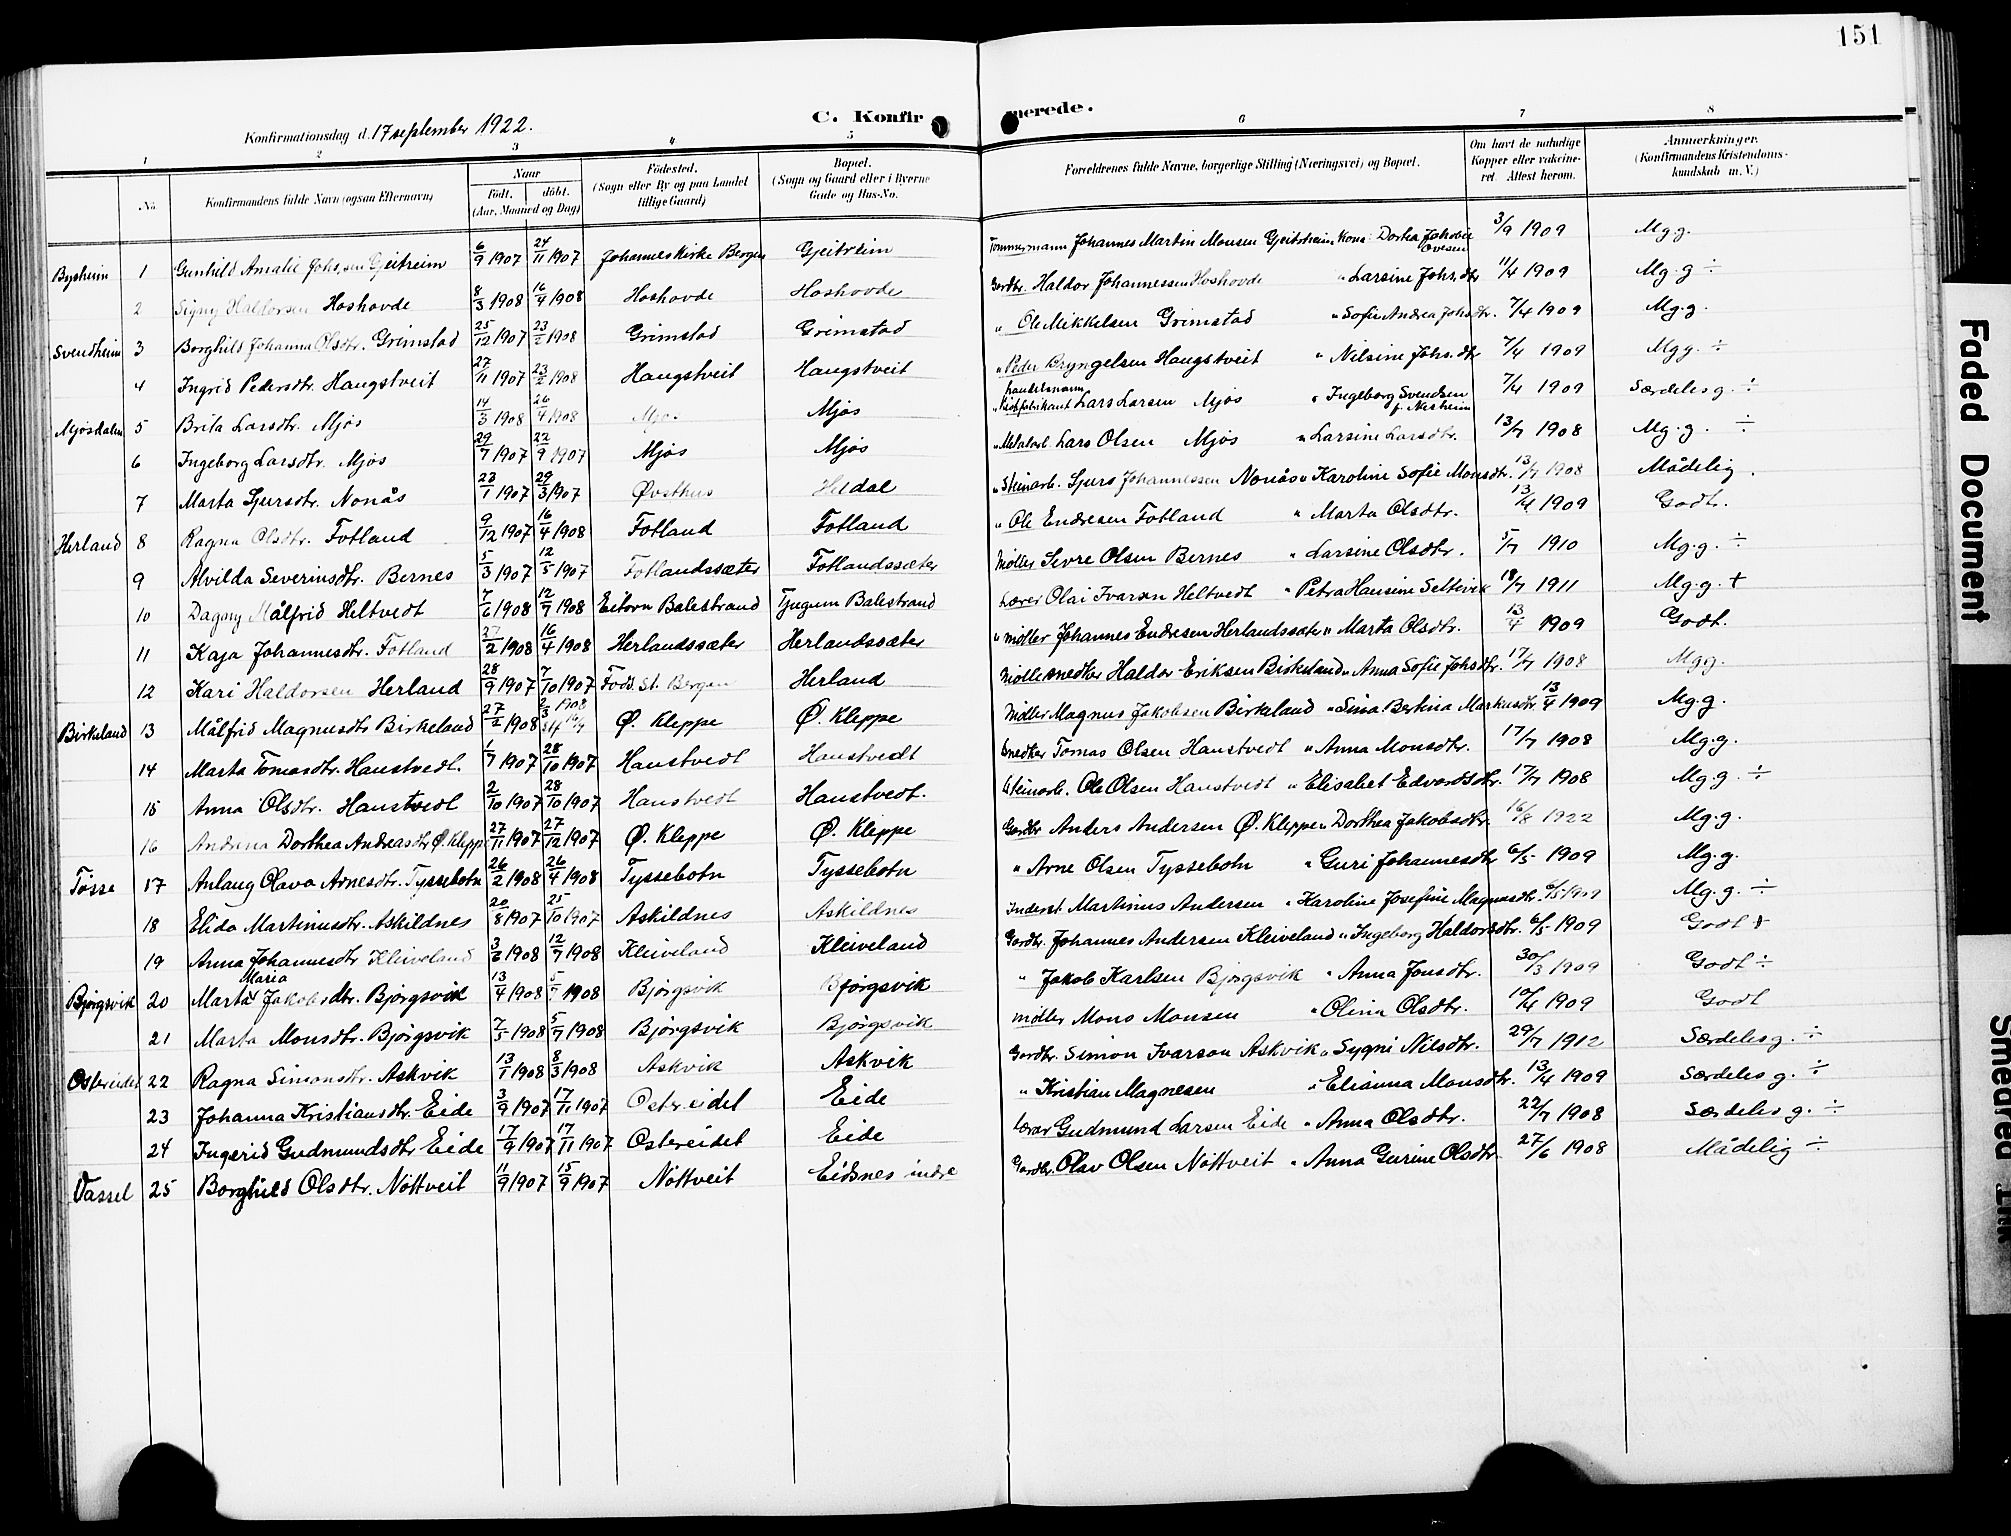 151
C. Konfirmerede.
Konfirmationsdag d. 17 september 1922.
1 2 3 4 5 6 7 8
No.
Konfirmandens fulde Navn (ogsaa Efternavn)
Naar
Födt. döbt.
(Aar, Maaned og Dag)
Födested.
(Sogn eller By og paa Landet tillige Gaard)
Bopæl.
(Sogn og Gaard eller i Byerne Gade og Hus-No.
Forældrenes fulde Navne, borgerlige Stilling (Næringsvei) og Bopæl.
Om havt de naturlige Kopper eller vakcineret. Attest herom.
Anmerkninger.
(Konfirmandens Kristendomskundskab m. V.)
Bysheim 1 Gunhild Amalie Johs.sen Gjeitreim 6/9 1907 24/11 1907 Johanneskirke Bergen Gjeitreim Tømmermann Johannes Martin Monsen Gjeitreim Kone Dorthea Jakobie Ovesen 3/9 1909 Mg.g.
2 Signy Haldorsen Hoshovde 8/3 1908 16/4 1908 Hoshovde Hoshovde Gardbr. Haldor Johannessen Hoshovde " Larsine Johs.dtr 11/4 1909 Mg.g ÷
Svendheim 3 Borghild Johanna Olsdtr. Grimstad 25/12 1907 23/2 1908 Grimstad Grimstad " Ole Mikkelsen Grimstad " Sofie Andrea Johsdtr. 7/4 1909 Mg.g.
4 Ingrid Pedersdtr. Haugstveit 27/11 1907 23/2 1908 Haugstveit Haugstveit " Peder Bryngelsen Haugstveit " Nilsine Johs.dtr 7/4 1909 Mgg. ÷
Mjøsdalen 5 Brita Larsdtr. Mjøs 14/3 1908 26/4 1908 Mjøs Mjøs handelsmann Lars Larsen Mjøs " Ingeborg Svendsen f. Nesheim 7/4 1909 Særdeles g. ÷
6 Ingeborg Larsdtr. Mjøs 29/7 1907 22/9 1907 Mjøs Mjøs " Metalarb. Lars Olsen Mjøs " Larsine Larsdtr. 13/7 1908 Mg.g. ÷
7 Marta Sjursdtr. Nonås 23/1 1907 29/3 1907 Øvsthus Heldal " Steinarb. Sjurs Johannessen Nonås " Karoline Sofie Monsdtr. 13/7 1908 Mådelig.
Herland 8 Ragna Olsdtr. Fotland 9/12 1907 16/4 1908 Fotland Fotland " Ole Endresen Fotland " Marta Olsdtr. 13/4 1909 Godt.
9 Alvilda Severinsdtr. Bernes 5/3 1907 12/5 1907 Fotlandssæter Fotlandssæter Møller Sevre Olsen Bernes " Larsine Olsdtr. 5/7 1910 Mg.g. ÷
10 Dagny Målfrid Heltvedt 7/6 1908 12/7 1908 Eitorn Balestrand Tjugum Balestrand Lærer Olai Ivarsen Heltvedt " Petra Hansine Seltevik 18/7 1911 Mg.g. +
11 Kaja Johannesdtr. Fotland 2/2 1908 16/4 1908 Herlandssæter Herlandssæter " møller Johannes Endresen Herlandssæter " Marta Olsdtr. 13/4 1909 Godt.
12 Kari Haldorsen Herland 28/9 1907 7/10 1907 Føds. St. Bergen Herland Møllesnedker Haldor Eriksen Birkeland " Anna Sofie Johsdtr. 17/7 1908 Mgg.
Birkeland 13 Målfrid Magnusdtr Birkeland 27/2 1908 Ø. Kleppe Ø. Kleppe Møller Magnus Jakobsen Birkeland " Sina Bertina Markusdtr 13/4 1909 Mg.g.
14 Marta Tomasdtr. Haustvedt. 1/7 1907 28/10 1907 Haustvedt Haustvedt Snedker Tomas Olsen Haustvedt " Anna Monsdtr. 17/7 1908 Mg.g.
15 Anna Olsdtr. Haustvedt 2/10 1907 28/10 1907 Haustvedt Haustvedt. Steinarb. Ole Olsen Haustvedt " Elisabet Edvardsdtr. 17/7 1908 Mg.g. ÷
16 Andrina Dorthea Andreasdtr Ø. Kleppe 27/11 1907 27/12 1907 Ø. Kleppe Ø. Kleppe Gardbr Anders Andersen Ø. Kleppe " Dorthea Jakobsdtr. 16/8 1922 Mg.g.
Tøsse 17 Anlaug Olava Arnesdtr. Tyssebotn 26/2 1908 26/4 1908 Tyssebotn Tyssebotn " Arne Olsen Tyssebotn " Guri Johannesdtr 6/5 1909 Mg.g.
18 Elida Martinusdtr. Askildnes 20/8 1907 25/10 1907 Askildnes Askildnes Inderst Martinus Andersen " Karoline Josefine Magnusdtr. 6/5 1909 Mg.g. ÷
19 Anna Johannesdtr Kleiveland 3/6 1908 12/7 1908 Kleiveland Kleiveland Gardbr. Johannes Andersen Kleiveland " Ingeborg Haldorsdtr. 6/5 1909 Godt +
Bjørgsvik 20 Marta Maria Jakobsdtr. Bjørgsvik 13/4 1908 5/7 1908 Bjørgsvik Bjørgsvik " Jakob Karlsen Bjørgsvik " Anna Jonsdtr. 30/3 1909 Godt ÷
21 Marta Monsdtr. Bjørgsvik 7/5 1908 5/7 1908 Bjørgsvik Bjørgsvik møller Mons Monsen " Olina Olsdtr. 10/4 1909 Godt
Ostereidet 22 Ragna Simonsdtr. Askvik 13/1 1908 8/3 1908 Askvik Askvik Gardbr. Simon Ivarson Askvik " Sygni Nilsdtr. 29/7 1912 Særdeles g. ÷
23 Johanna Kristiansdtr. Eide 3/9 1907 17/11 1907 Ostereidet Eide " Kristian Magnesen " Elianna Monsdtr. 13/4 1909 Særdeles g. ÷
24 Ingerid Gudmundsdtr Eide 17/9 1907 17/11 1907 Ostereidet Eide Lærer Gudmund Larsen Eide " Anna Olsdtr. 22/7 1908 Særdeles g. ÷
Vassel 25 Borghild Olsdtr. Nöttveit 11/9 1907 15/9 1907 Nöttveit Eidsnes indre Gardbr. Olav Olsen Nöttveit " Anna Gurine Olsdtr 27/6 1908 Mådelig ÷
Faded Document
Smeared Ink